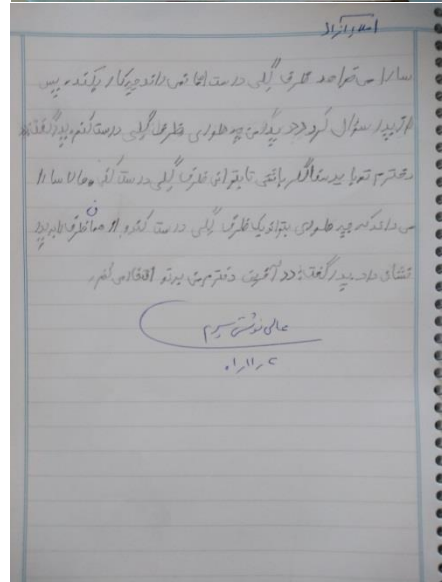 املاء آزاد
سارا می‌خواهد ظرف گلی درست اما نمی‌داند چیکار بکند. پس
از پدر سؤال کرد پدر من چه طوری ظرف گلی درست کنم پدر گفت
دخترم تو باید سفالگر باشی تا بتوانی ظرف گلی درست کنی. حالا سارا
می‌داند که چه طوری بتواند یک ظرف گلی درست کند و آن ظرف را به پدر
نشان داد. پدر گفت: آفرین دخترم من به تو افتخار می‌کنم.
عالی نوشتی پسرم